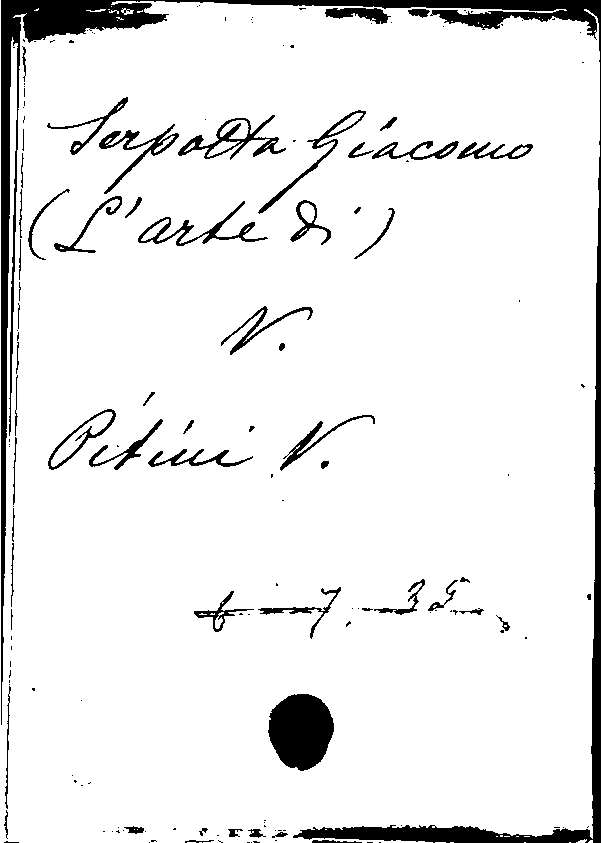 Serpotta Giacomo
(L'arte di)
V.
Pitini V.
6 7. 35